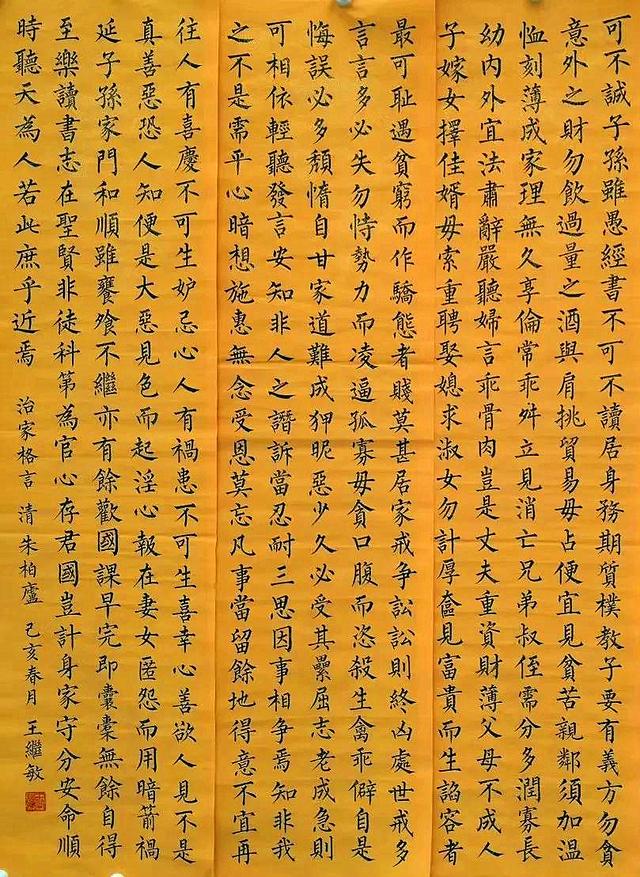 可不誠子孫雖愚經書不可不讀居身務期質樸教子要有義方勿貪
意外之財勿飲過量之酒與肩挑貿易毋占便宜見貧苦親鄰須加溫
恤刻薄成家理無久享倫常乖舛立見消亡兄弟叔侄需分多潤寡長
幼內外宜法肅辭嚴聽婦言乖骨肉豈是丈夫重資財薄父母不成人
子嫁女擇佳婿毋索重聘娶媳求淑女勿計厚奩見富貴而生諂容者
最可耻遇貧窮而作驕態者賤莫甚居家戒争訟訟則終凶處世戒多
言言多必失勿恃勢力而凌逼孤寡毋貪口腹而恣殺生禽乖僻自是
悔誤必多頹惰自甘家道難成狎昵惡少久必受其纍屈志老成急則
可相依輕聽發言安知非人之譖訴當忍耐三思因事相争焉知非我
之不是需平心暗想施惠無念受恩莫忘凡事當留餘地得意不宜再
往人有喜慶不可生妒忌心人有禍患不可生喜幸心善欲人見不是
真善惡恐人知便是大惡見色而起淫心報在妻女匿怨而用暗箭禍
延子孫家門和順雖饔飧不繼亦有餘歡國課早完即囊橐無餘自得
至樂讀書志在聖賢非徒科第為官心存君國豈計身家守分安命順
時聽天為人若此庶乎近焉 治家格言 清 朱柏廬 己亥春月 王繼敏